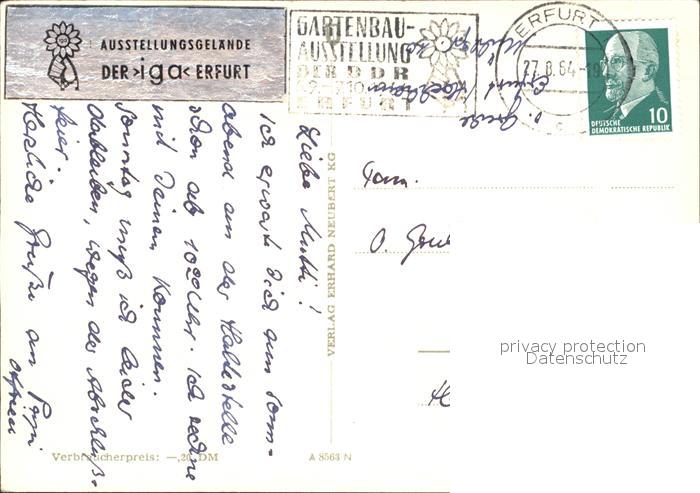 AUSSTELLUNGSGELÄNDE
DER >iga< ERFURT
GARTENBAU-
AUSSTELLUNG
DER DDR
ERFURT
ERFURT
27.8.64-19
c
10
DEUTSCHE
DEMOKRATISCHE REPUBLIK
Liebe Mutti!
Ich erwarte Dich zum Sonn-
abend an der Haltestelle
schon ab 10 Uhr. Ich rechne
mit Deinem Kommen.
Sonntag muß ich leider
dableiben, wegen der Abschluß-
feier.
Herzliche Grüße an Papi
Fam.
O.
VERLAG ERHARD NEUBERT KG
Verbraucherpreis: —,20 DM
A 8563 N
privacy protection
Datenschutz